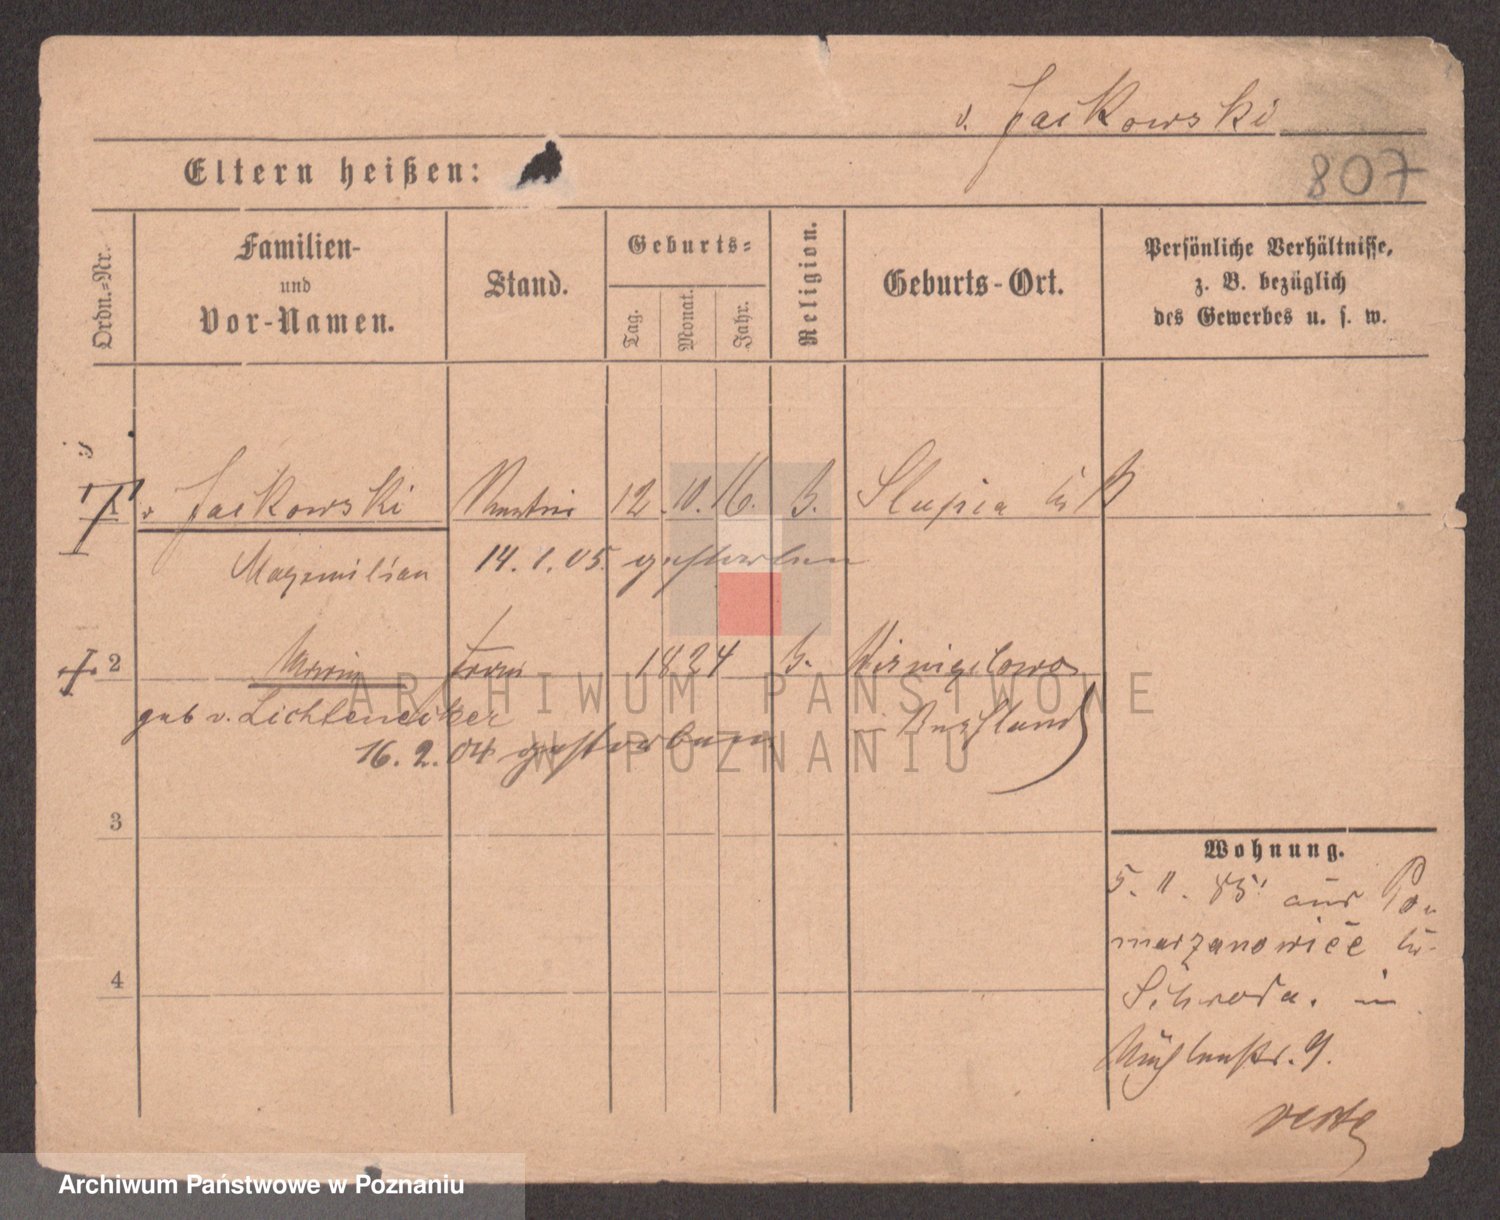 v. Jackowski
807
Eltern heißen:
Ordn.-Nr.
Familien-
und
Vor-Namen.
Stand.
Geburts-
Tag.
Monat.
Jahr.
Religion.
Geburts-Ort.
Persönliche Verhältnisse,
z. B. bezüglich
des Gewerbes u. s. w.
1 v Jackowski 12. 10. 16. Slupia
Maximilian 14. 1. 05. gestorben
2 Frau 1824
geb v. Lichteneiker Russland
16. 2. 04 gestorben
3
4
Wohnung.
5. 11. 85. aus Po-
marzanowice
Schroda. in
Mühlenstr. 9.
verte
ARCHIWUM PAŃSTWOWE
W POZNANIU
Archiwum Państwowe w Poznaniu